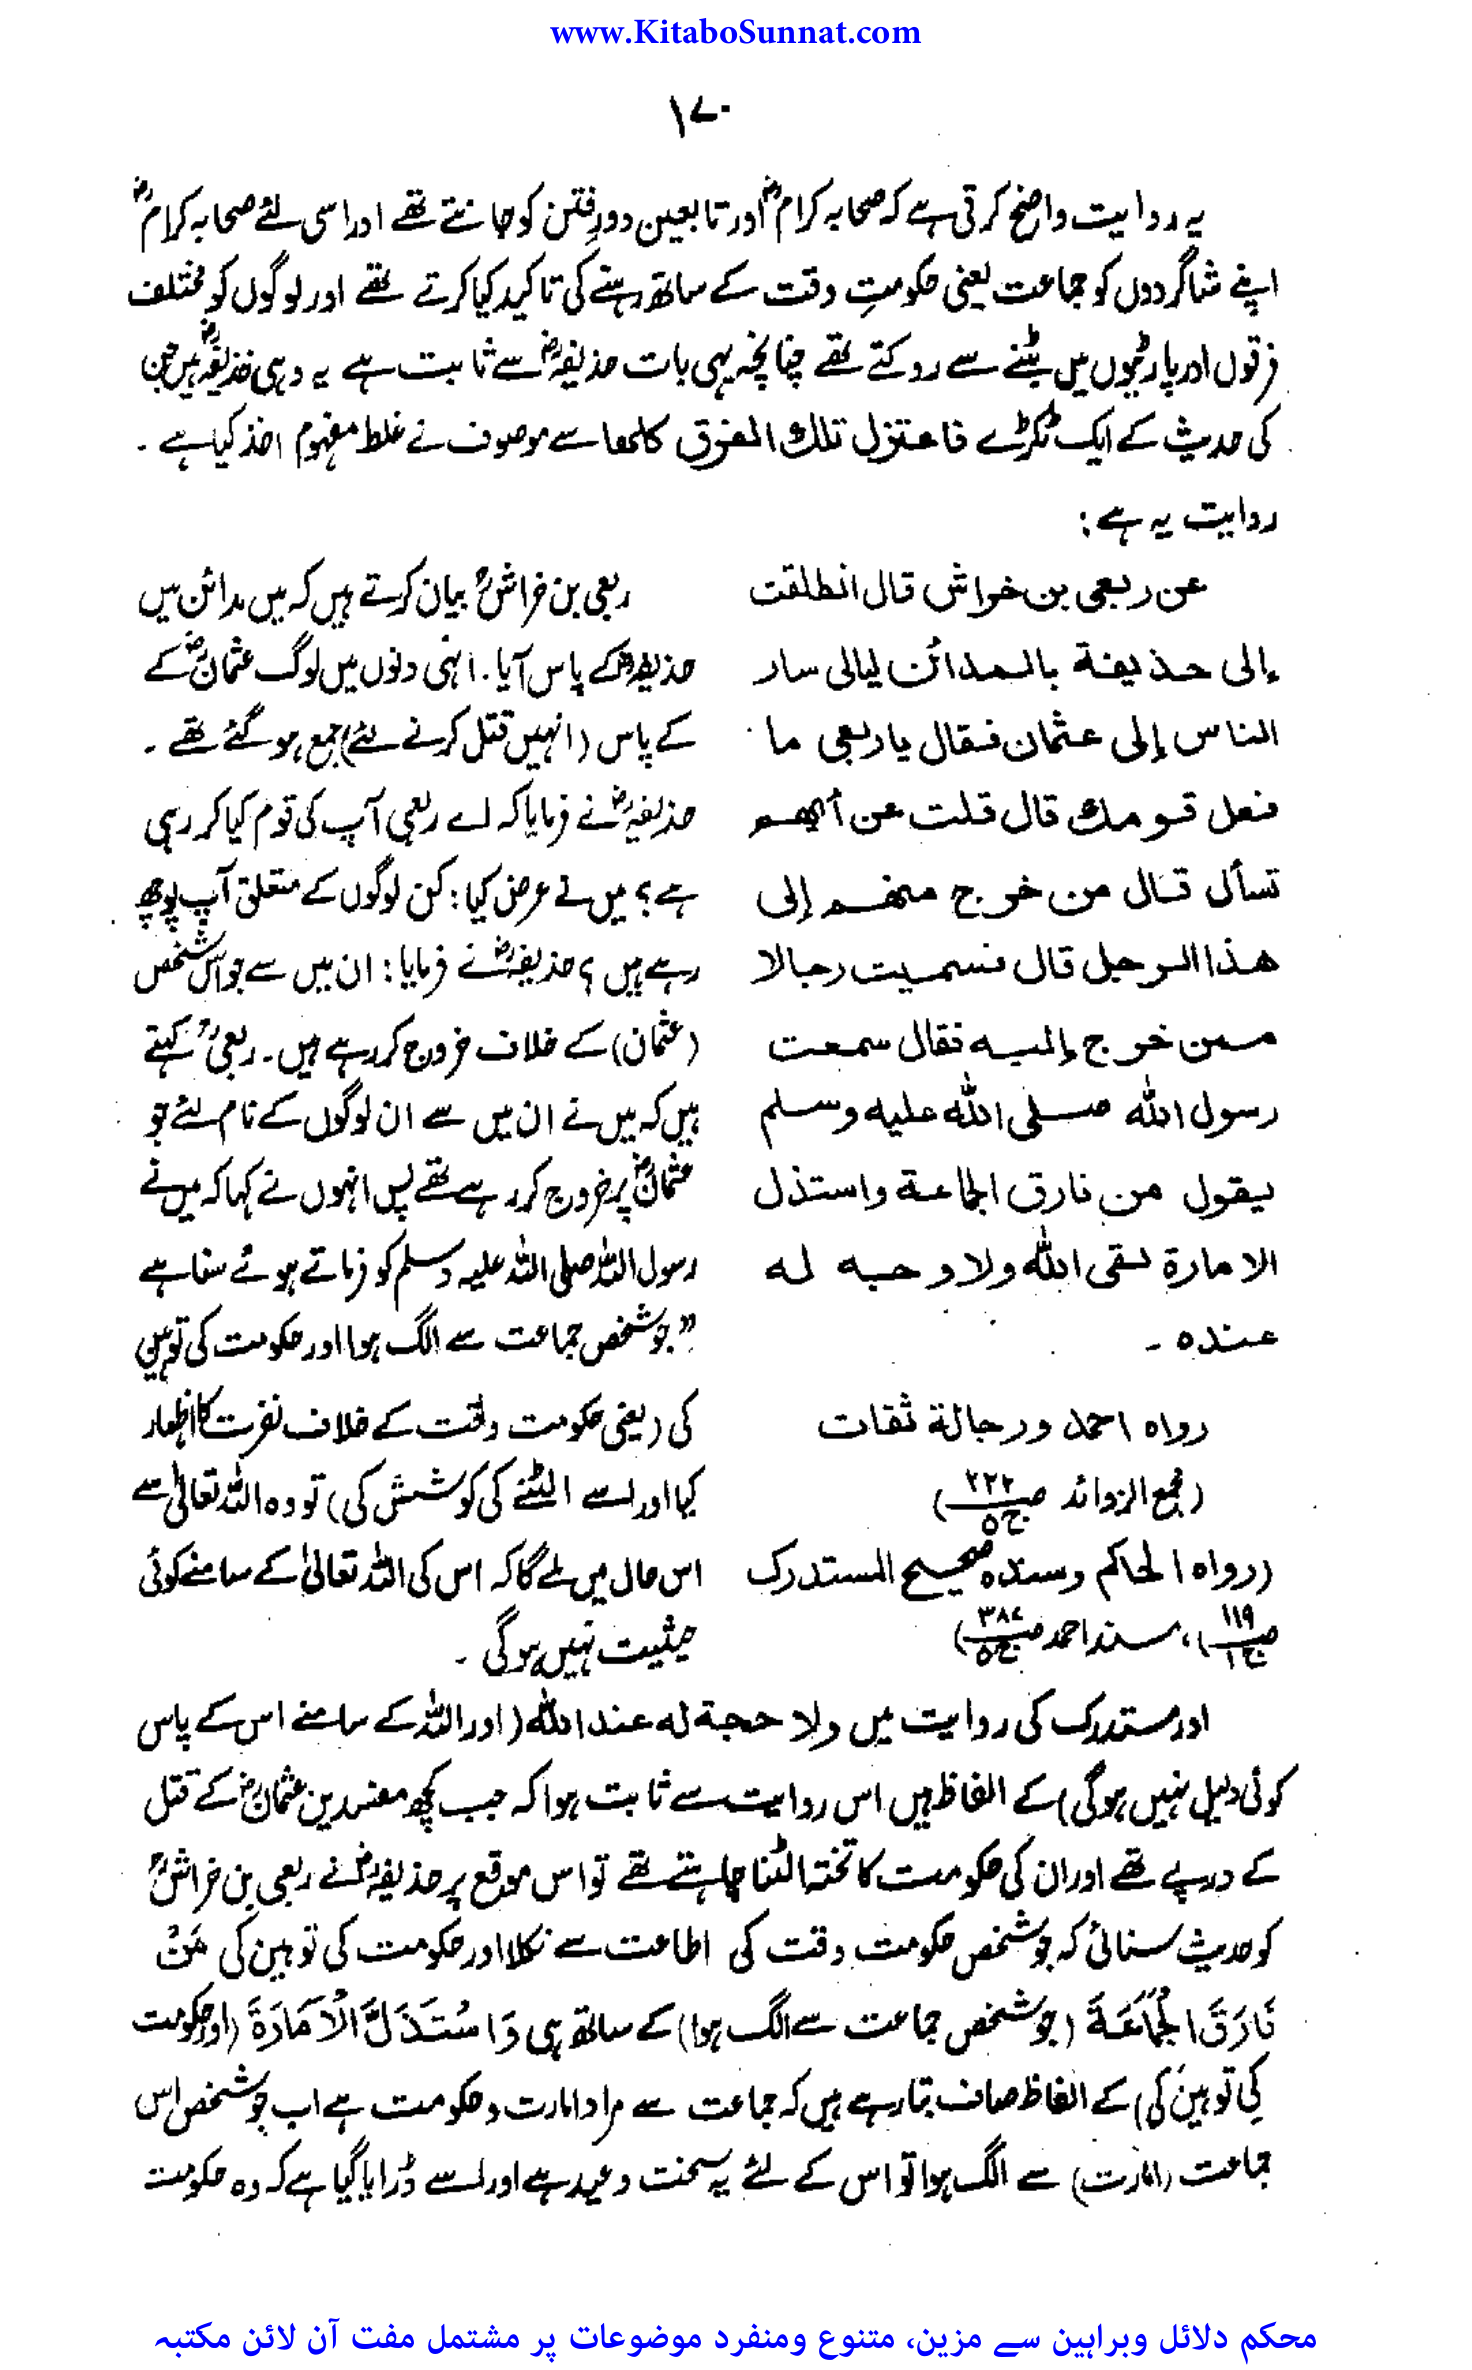 www.KitaboSunnat.com
۱۷۰
یہ روایت واضح کرتی ہے کہ صحابہ کرامؓ اور تابعین دورِ فتن کو جانتے تھے اور اسی لئے صحابہ کرامؓ
اپنے شاگردوں کو جماعت یعنی حکومتِ وقت کے ساتھ رہنے کی تاکید کیا کرتے تھے اور لوگوں کو مختلف
فرقوں اور پارٹیوں میں بٹنے سے روکتے تھے چنانچہ یہی بات حذیفہؓ سے ثابت ہے یہ وہی حذیفہؓ ہیں جن
کی حدیث کے ایک ٹکڑے فاعتزل تلك الفرق کلھا سے موصوف نے غلط مفہوم اخذ کیا ہے ۔
روایت یہ ہے :
عن ربعی بن خراش قال انطلقت
إلی حذیفة بالمدائن لیالی سار
الناس إلی عثمان فقال یا ربعی ما
فعل قومك قال قلت عن أیھم
تسأل قال من خرج منھم إلی
هذا الرجل قال فسمیت رجالا
ممن خرج إلیه فقال سمعت
رسول الله صلی الله علیه وسلم
یقول من فارق الجماعة واستذل
الامارة لقی الله ولا وجه له
عنده ۔
رواه احمد ورجالة ثقات
(مجمع الزوائد ص۲۲۲ ج۵)
(رواه الحاکم وسنده صحیح المستدرک
ص۱۱۹ ج۱)، مسند احمد ص۳۸۷ ج۵)
ربعی بن خراشؒ بیان کرتے ہیں کہ میں مدائن میں
حذیفہؓ کے پاس آیا۔ انہی دنوں میں لوگ عثمانؓ کے
کے پاس (انہیں قتل کرنے لئے) جمع ہو گئے تھے ۔
حذیفہؓ نے فرمایا کہ اے ربعی آپ کی قوم کیا کر رہی
ہے؟ میں نے عرض کیا : کن لوگوں کے متعلق آپ پوچھ
رہے ہیں ؟ حذیفہؓ نے فرمایا : ان میں سے جو اس شخص
(عثمان) کے خلاف خروج کر رہے ہیں۔ ربعیؒ کہتے
ہیں کہ میں نے ان میں سے ان لوگوں کے نام لئے جو
عثمانؓ پر خروج کر رہے تھے پس انہوں نے کہا کہ میں نے
رسول اللہ صلی اللہ علیہ وسلم کو فرماتے ہوئے سنا ہے
”جو شخص جماعت سے الگ ہوا اور حکومت کی توہین
کی (یعنی حکومت وقت کے خلاف نفرت کا اظہار
کیا اور اسے الٹنے کی کوشش کی) تو وہ اللہ تعالیٰ سے
اس حال میں ملے گا کہ اس کی اللہ تعالیٰ کے سامنے کوئی
حیثیت نہیں ہو گی ۔
اور مستدرک کی روایت میں ولا حجة له عند الله (اور اللہ کے سامنے اس کے پاس
کوئی دلیل نہیں ہو گی) کے الفاظ ہیں اس روایت سے ثابت ہوا کہ جب کچھ مفسدین عثمانؓ کے قتل
کے درپے تھے اور ان کی حکومت کا تختہ الٹنا چاہتے تھے تو اس موقع پر حذیفہؓ نے ربعی بن خراشؒ
کو حدیث سنائی کہ جو شخص حکومت وقت کی اطاعت سے نکلا اور حکومت کی توہین کی مَنْ
فَارَقَ الْجَمَاعَةَ (جو شخص جماعت سے الگ ہوا) کے ساتھ ہی وَاسْتَذَلَّ الْاَمَارَةَ (اور حکومت
کی توہین کی) کے الفاظ صاف بتا رہے ہیں کہ جماعت سے مراد امارت و حکومت ہے اب جو شخص اس
جماعت (امارت) سے الگ ہوا تو اس کے لئے یہ سخت وعید ہے اور اسے ڈرایا گیا ہے کہ وہ حکومت
محکم دلائل وبراہین سے مزین، متنوع ومنفرد موضوعات پر مشتمل مفت آن لائن مکتبہ